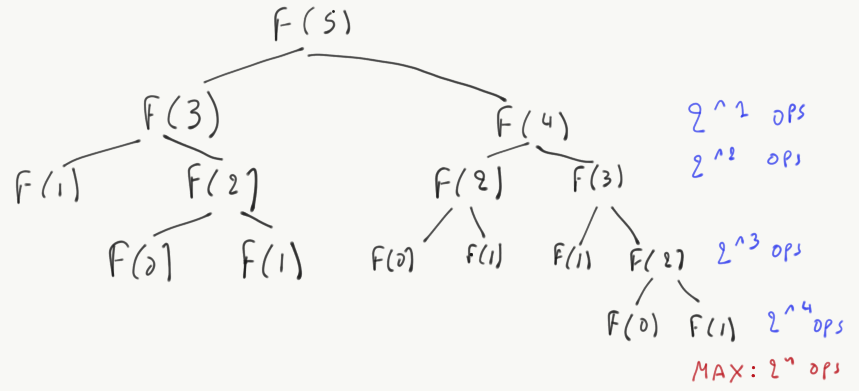 F(5)
F(3) F(4) 2^1 ops
F(1) F(2) F(2) F(3) 2^2 ops
F(0) F(1) F(0) F(1) F(1) F(2) 2^3 ops
F(0) F(1) 2^4 ops
MAX: 2^n ops